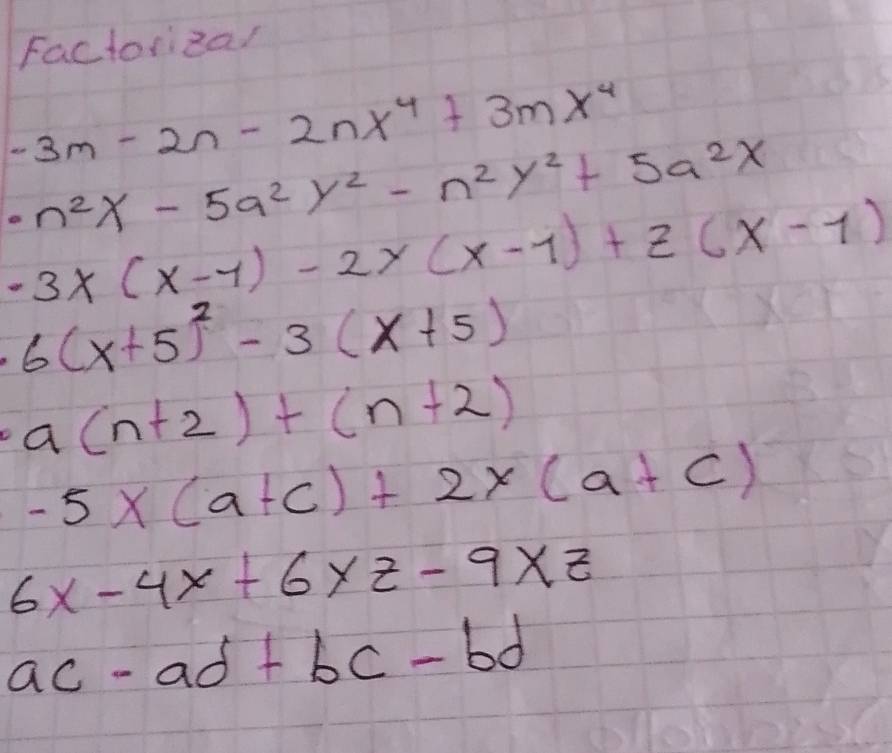 Factorizar
-3m - 2n - 2nx⁴ + 3mx⁴
•n²x - 5a²y² - n²y² + 5a²x
•3x(x-1) - 2y(x-1) + z(x-1)
•6(x+5)² - 3(x+5)
•a(n+2) + (n+2)
-5x(a+c) + 2y(a+c)
6x - 4y + 6yz - 9xz
ac - ad + bc - bd